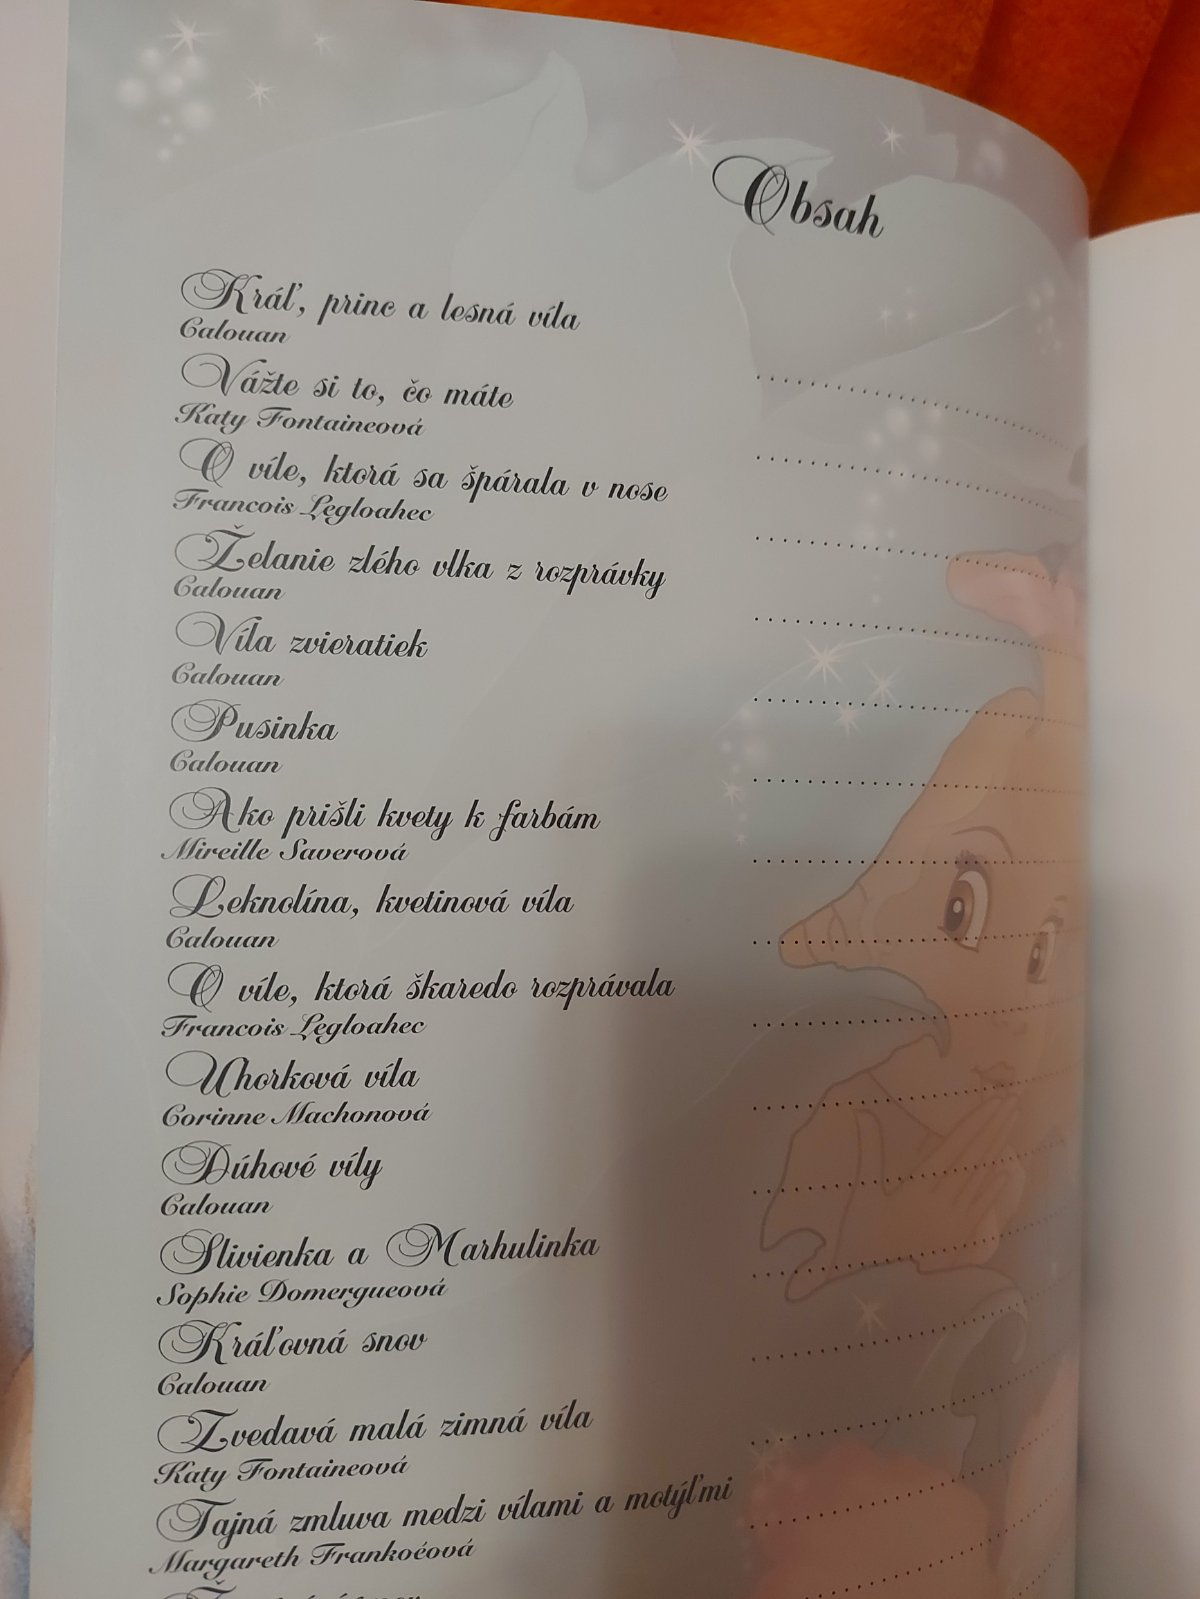 Obsah
Kráľ, princ a lesná víla
Calouan
Vážte si to, čo máte
Katy Fontaineová
O víle, ktorá sa špárala v nose
Francois Legloahec
Želanie zlého vlka z rozprávky
Calouan
Víla zvieratiek
Calouan
Pusinka
Calouan
Ako prišli kvety k farbám
Mireille Saverová
Leknolína, kvetinová víla
Calouan
O víle, ktorá škaredo rozprávala
Francois Legloahec
Uhorková víla
Corinne Machonová
Dúhové víly
Calouan
Slivienka a Marhulinka
Sophie Domergueová
Kráľovná snov
Calouan
Zvedavá malá zimná víla
Katy Fontaineová
Tajná zmluva medzi vílami a motýľmi
Margareth Frankoéová